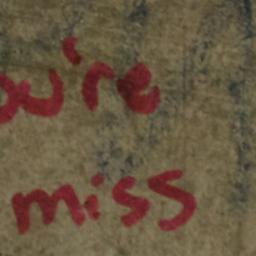 ou're
miss